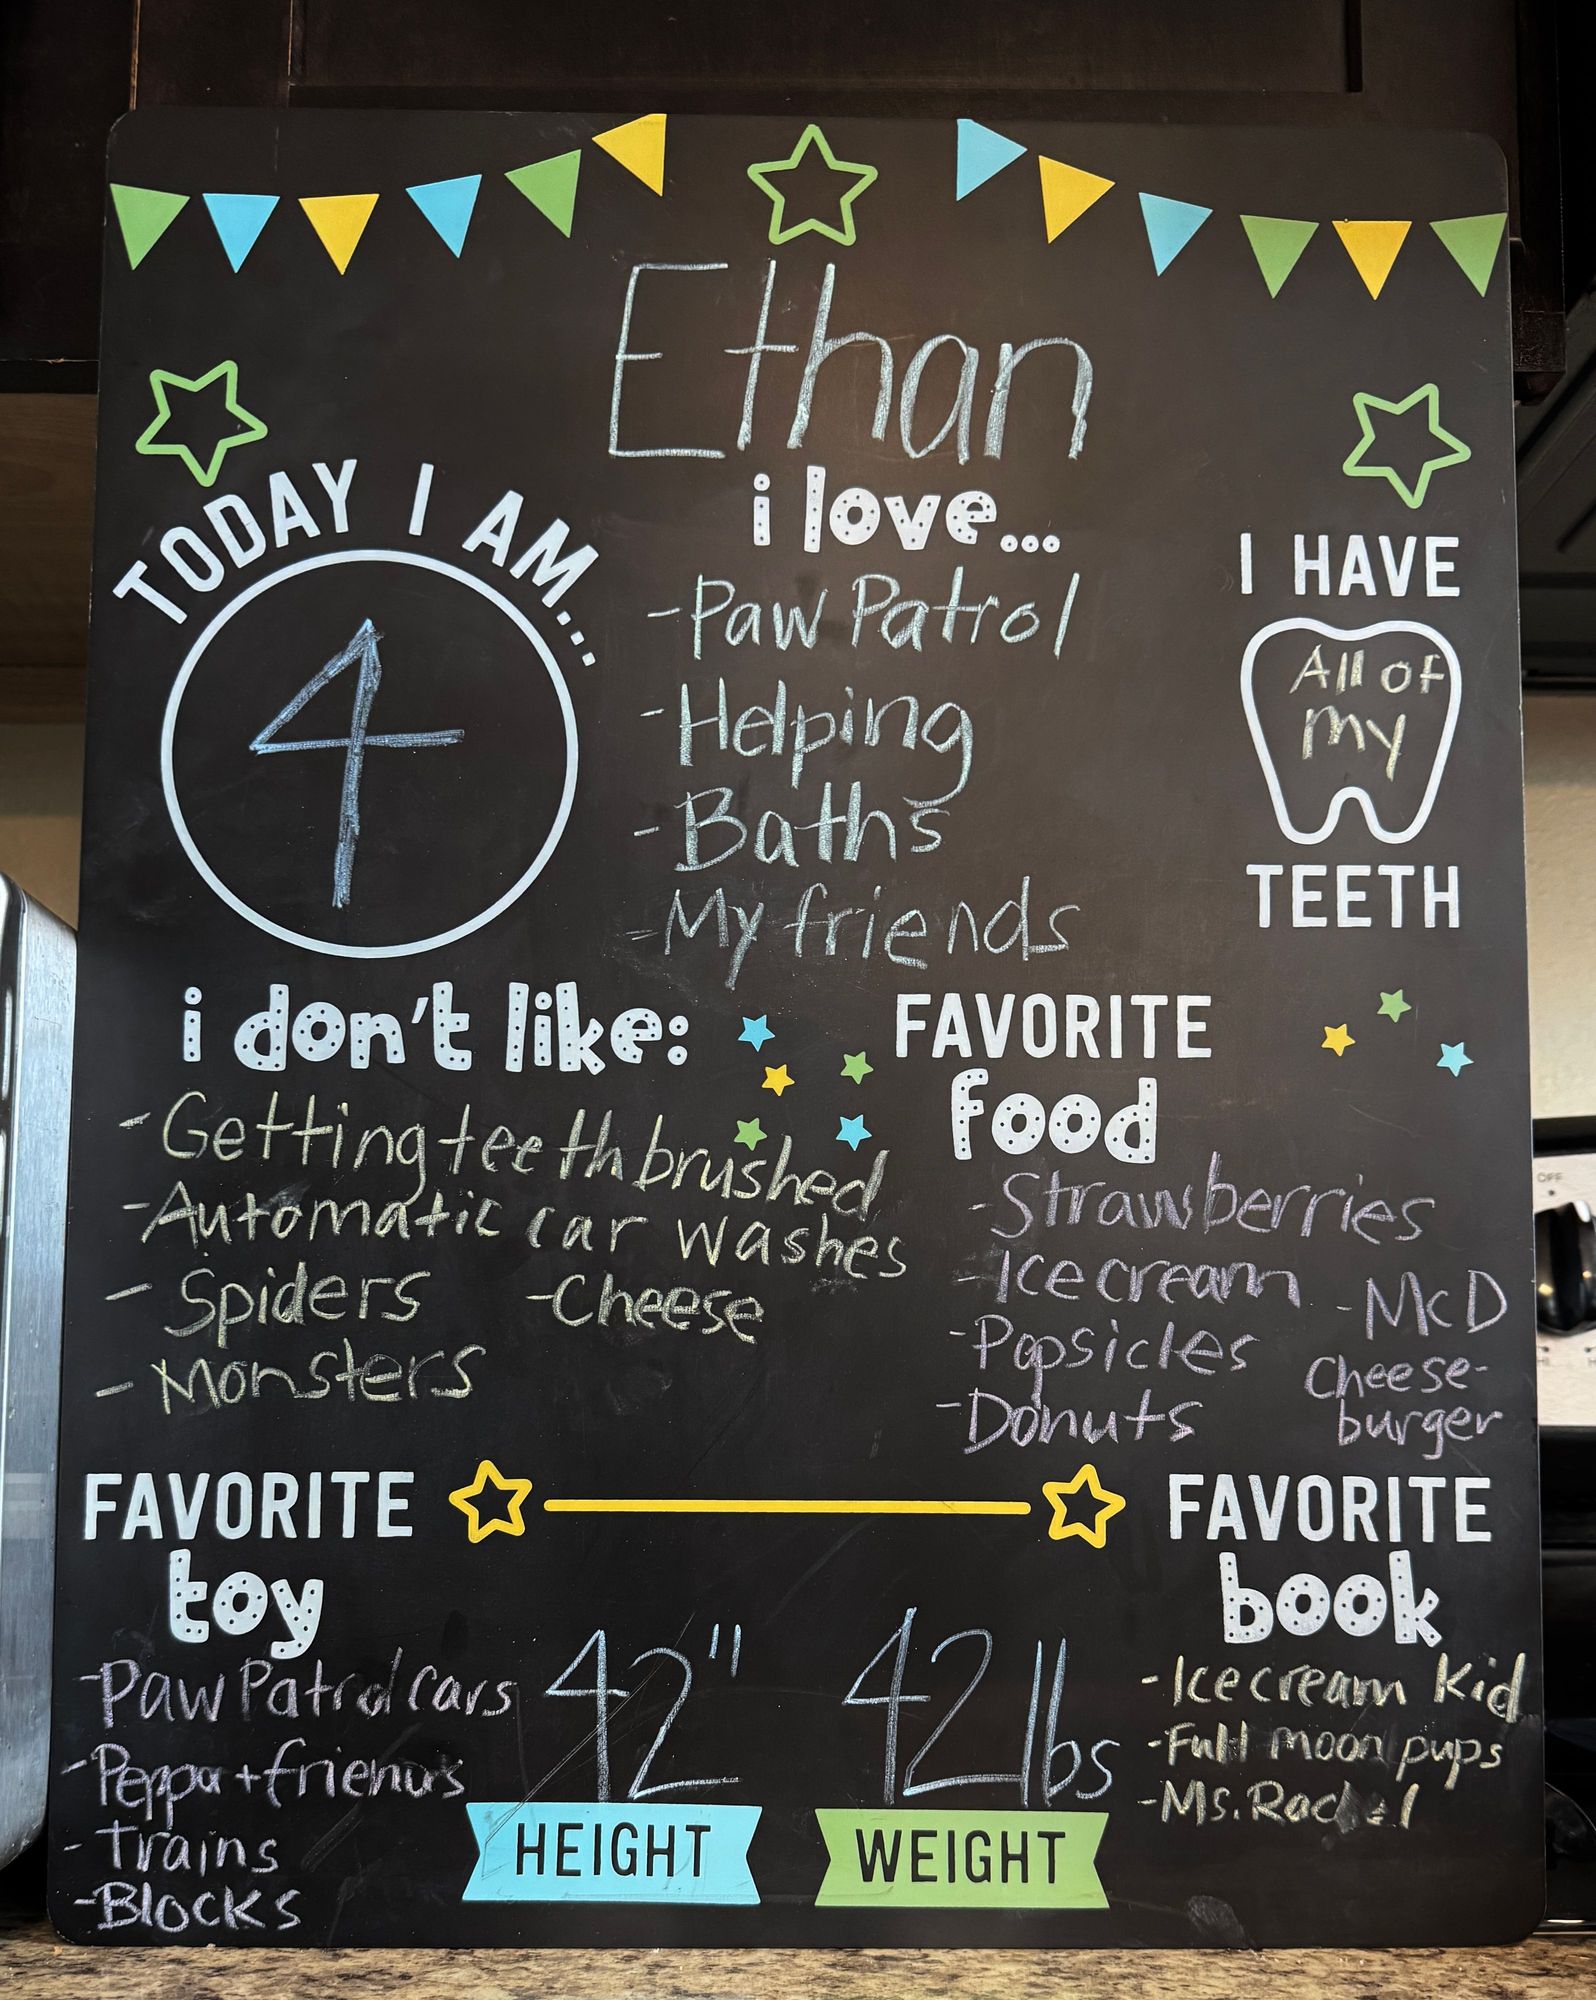 Ethan
TODAY I AM...
4
i love...
-Paw Patrol
-Helping
-Baths
-My friends
I HAVE
All of
my
TEETH
i don't like:
-Getting teeth brushed
-Automatic car washes
-Spiders
-Cheese
-Monsters
FAVORITE
food
-Strawberries
-Ice cream
-Popsicles
-Donuts
-McD
Cheese-
burger
FAVORITE
toy
-Paw Patrol cars
-Peppa + friends
-Trains
-Blocks
42"
HEIGHT
42 lbs
WEIGHT
FAVORITE
book
-Ice cream Kid
-Full moon pups
-Ms. Rachel
OFF